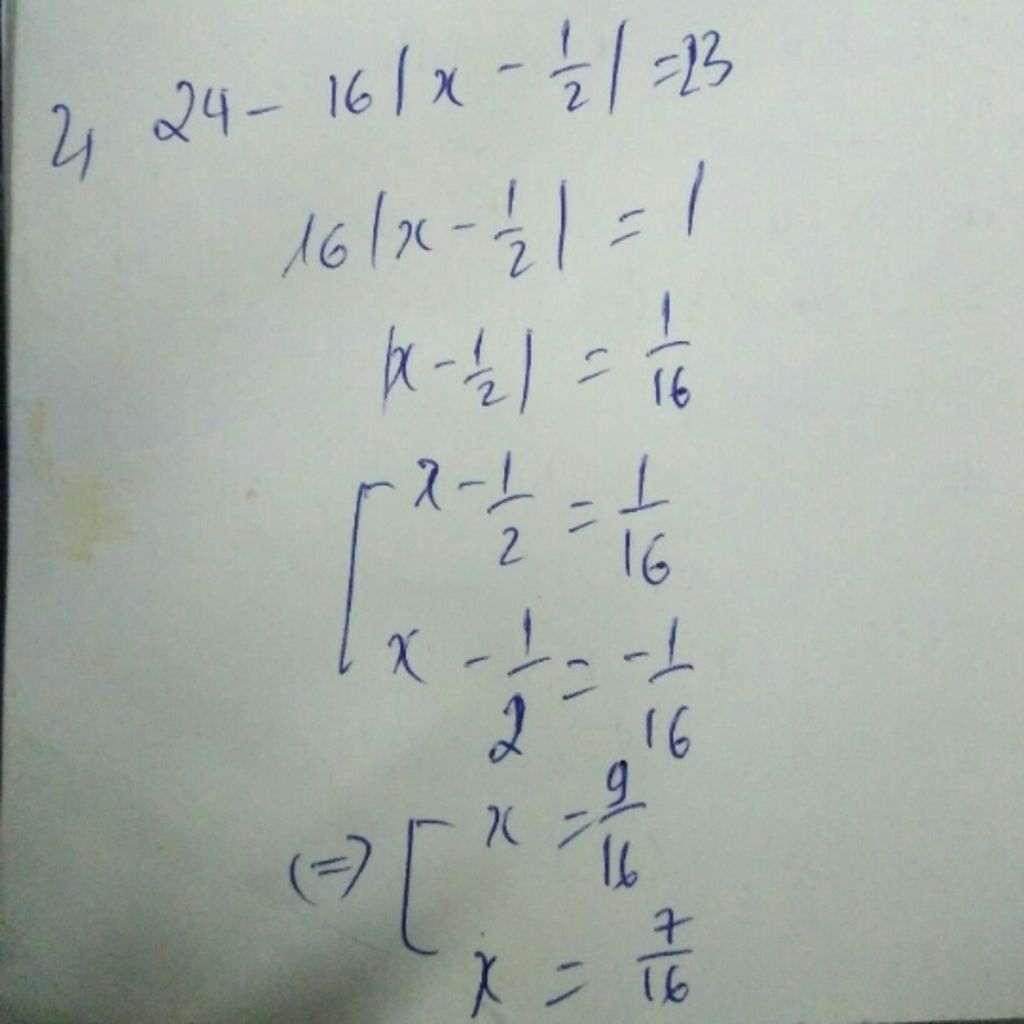 2, 24 - 16|x - 1/2| = 23
16|x - 1/2| = 1
|x - 1/2| = 1/16
[ x - 1/2 = 1/16
x - 1/2 = -1/16
(=) [ x = 9/16
x = 7/16